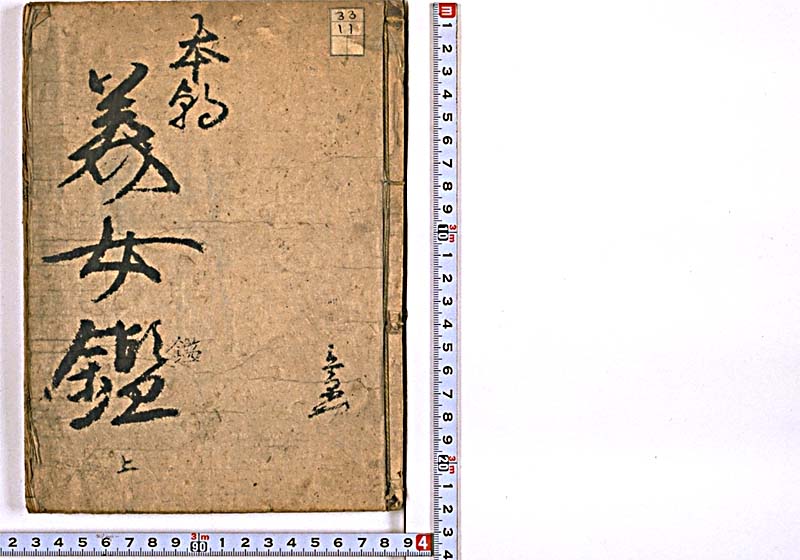 本朝
義女鑑
鑑
上
33
11
m 1 2 3 4 5 6 7 8 9 3m 10 1 2 3 4 5 6 7 8 9 3m 20 1 2 3 4
2 3 4 5 6 7 8 9 3m 90 1 2 3 4 5 6 7 8 9 4